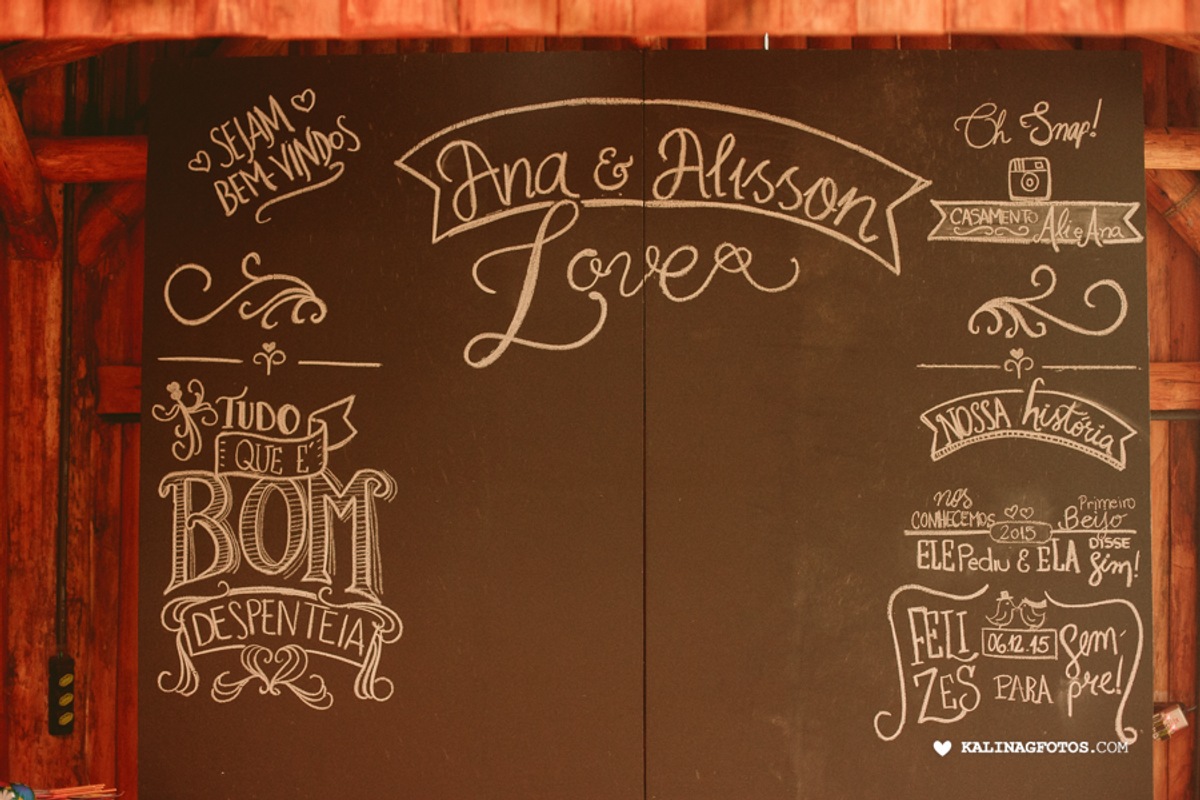 SEJAM
BEM-VINDOS
Ana & Alisson
Love
Oh Snap!
CASAMENTO Ali e Ana
TUDO
QUE É
BOM
DESPENTEIA
NOSSA história
nos CONHECEMOS
2015
Primeiro Beijo
ELE Pediu & ELA DISSE Sim!
FELIZES
06.12.15
PARA Sempre!
KALINAGFOTOS.COM